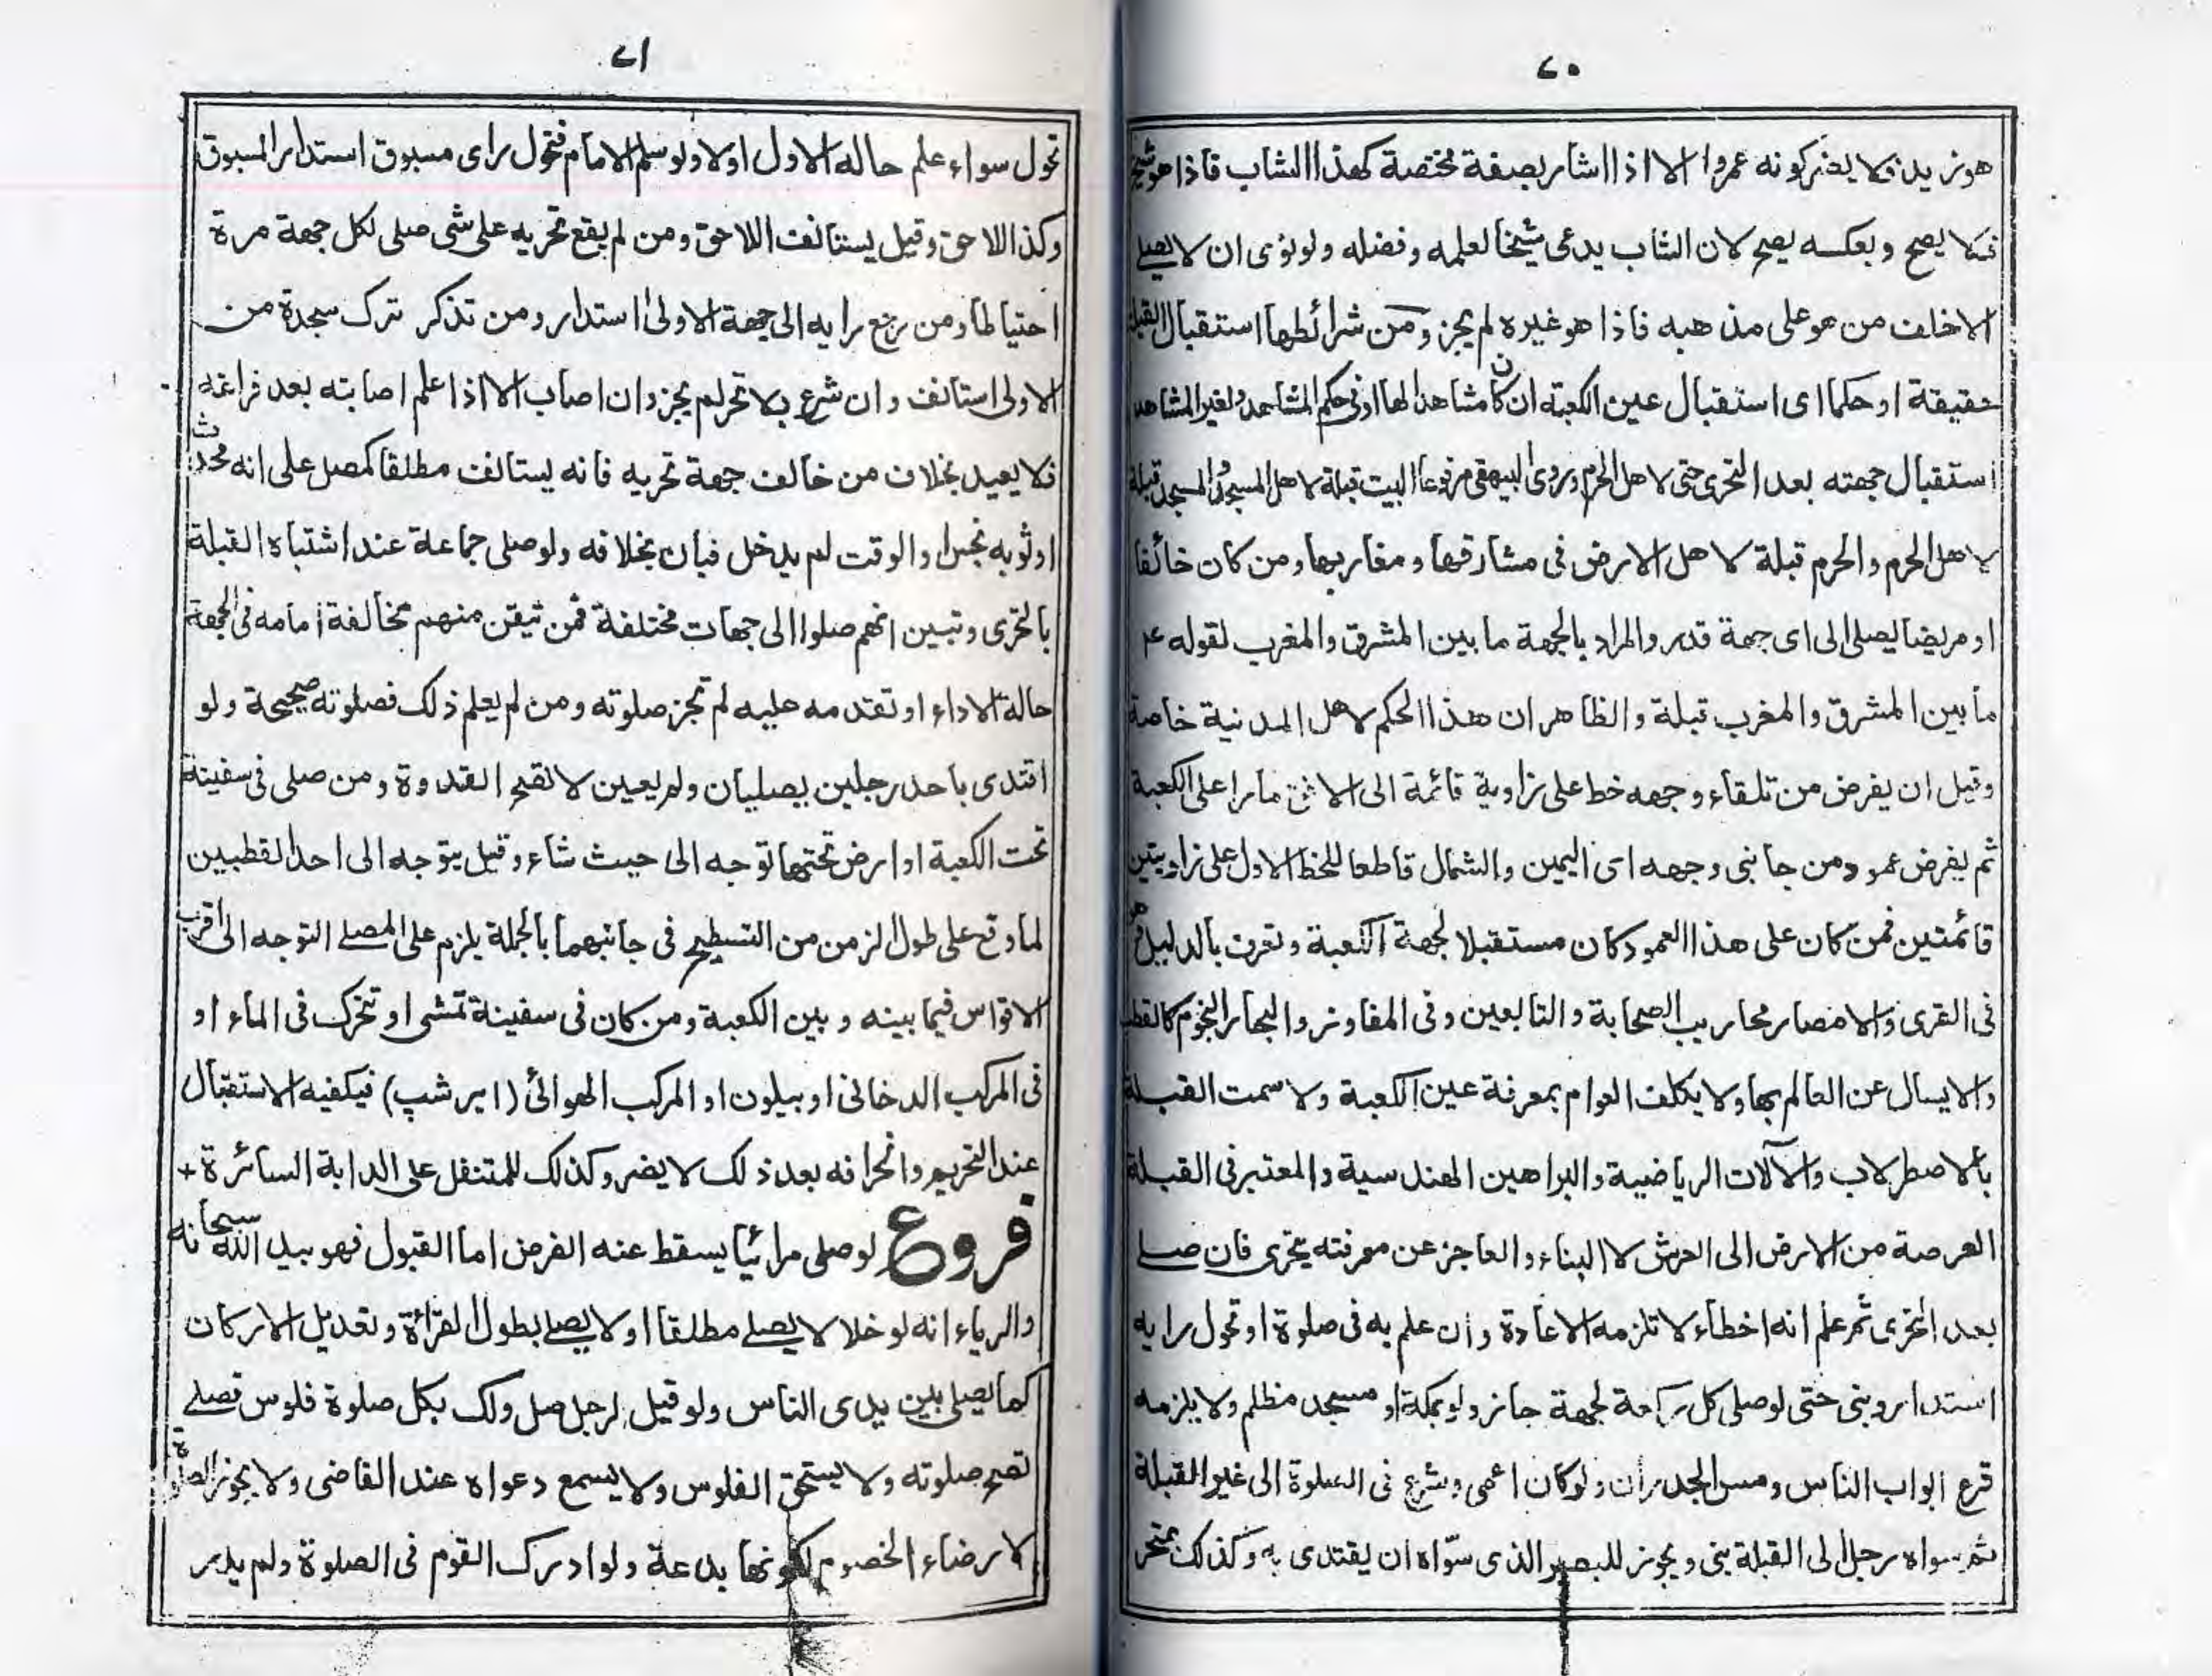 ٢٠
هو زيد فلا يضر كونه عمروا الا اذا اشار بصفة مختصة كهذا الشاب فاذا هو شيخ
فلا يصح وبعكسه يصح لان الشاب يدعى شيخا لعلمه وفضله ولو نوى ان لا يصلے
الا خلف من هو على مذهبه فاذا هو غيره لم يجز ومن شرائطها استقبال القبلة
حقيقة او حكما اى استقبال عين الكعبة ان كان مشاهدا لها او فى حكم المشاهد ولغير المشاهد
استقبال جهته بعد التحرى حتى لاهل الحرم وروى البيهقى مرفوعا البيت قبلة لاهل المسجد والمسجد قبلة
لاهل الحرم والحرم قبلة لاهل الارض فى مشارقها ومغاربها ومن كان خائفا
او مريضا يصلى الى اى جهة قدر والمراد بالجهة ما بين المشرق والمغرب لقوله عم
ما بين المشرق والمغرب قبلة والظاهر ان هذا الحكم لاهل المدنية خاصة
وقيل ان يفرض من تلقاء وجهه خط على زاوية قائمة الى الافق مارا على الكعبة
ثم يفرض عمود من جانبى وجهه اى اليمين والشمال قاطعا للخط الاول على زاويتين
قائمتين فمن كان على هذا العمود كان مستقبلا لجهة الكعبة وتعرف بالدليل فهو
فى القرى والامصار محاريب الصحابة والتابعين وفى المفاوز والبحار النجوم كالقطب
والا يسال عن العالم بها ولا يكلف العوام بمعرفة عين الكعبة ولا سمت القبلة
بالاصطرلاب والآلات الرياضية والبراهين الهندسية والمعتبر فى القبلة
العرصة من الارض الى العرش لا البناء والعاجز عن معرفته يتحرى فان صلے
بعد التحرى ثم علم انه اخطاء لا تلزمه الاعادة وان علم به فى صلوة او تحول رايه
استدار وبنى حتى لو صلى كل ركعة لجهة جاز ولو بمكة او مسجد مظلم ولا يلزمه
قرع ابواب الناس ومس الجدران ولو كان اعمى وشرع فى الصلوة الى غير القبلة
ثم سواه رجل الى القبلة بنى ويجوز للبصير الذى سوّاه ان يقتدى به وكذلك متحر
٢١
تحول سواء علم حاله الاول اولا ولو سلم الامام فتحول راى مسبوق استدار المسبوق
وكذا اللاحق وقيل يستانف اللاحق ومن لم يقع تحريه على شى صلى لكل جهة مرة
احتياطا ومن رجع رايه الى جهة الاولى استدار ومن تذكر ترك سجدة من
الاولى استانف وان شرع بلا تحر لم يجز وان اصاب الا اذا علم اصابته بعد فراغه
فلا يعيد بخلاف من خالف جهة تحريه فانه يستانف مطلقا كمصل على انه محدث
او ثوبه نجس او الوقت لم يدخل فبان بخلافه ولو صلى جماعة عند اشتباه القبلة
بالتحرى وتبين انهم صلوا الى جهات مختلفة فمن تيقن منهم مخالفة امامه فى الجهة
حالة الاداء او تقدمه عليه لم تجز صلوته ومن لم يعلم ذلك فصلوته صحيحة ولو
اقتدى باحد رجلين يصليان ولم يعين لا تصح القدوة ومن صلى فى سفينة
تحت الكعبة او ارض تحتها توجه الى حيث شاء وقيل يتوجه الى احد القطبين
لما وقع على طول الزمن من التسطيح فى جانبهما بالجملة يلزم على المصلے التوجه الى اقرب
الاقواس فيما بينه وبين الكعبة ومن كان فى سفينة تمشى او تتحرك فى الماء او
فى المركب الدخانى او بيلون او المركب الهوائى (اير شپ) فيكفيه الاستقبال
عند التحريم وانحرافه بعد ذلك لا يضر وكذلك للمتنفل على الدابة السائرة +
فروع لو صلى مرائيا يسقط عنه الفرض اما القبول فهو بيد الله سبحانه
والرياء انه لو خلا لا يصلے مطلقا او لا يصلے بطول القرائة وتعديل الاركان
كما يصلى بين يدى الناس ولو قيل لرجل صل ولك بكل صلوة فلوس فصلے
تصح صلوته ولا يستحق الفلوس ولا يسمع دعواه عند القاضى ولا يجوز الصلوة
لارضاء الخصوم لكونها بدعة ولو ادرك القوم فى الصلوة ولم يدر